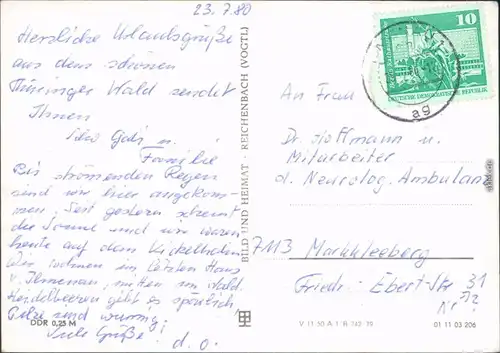 23.7.80
Herzliche Urlaubsgrüße
aus dem schönen
Thüringer Wald sendet
Ihnen
u.
Familie
Bei strömenden Regen
sind wir hier angekom-
men. Seit gestern scheint
die Sonne und wir waren
heute auf dem Kickelhahn
Wir wohnen im letzten Haus
v. Ilmenau, mitten im Wald.
Heidelbeeren gibt es spärlich
Pilze sind wurmig!
Viele Grüße!
d. O.
DDR 0,25 M
BILD UND HEIMAT · REICHENBACH (VOGTL)
10
DEUTSCHE DEMOKRATISCHE REPUBLIK
ag
An Frau
Dr. Hoffmann u.
Mitarbeiter
d. Neurolog. Ambulan
7113 Markkleeberg
Friedr. Ebert-Str 31
V 11 50 A 1 B 742 79
01 11 03 206